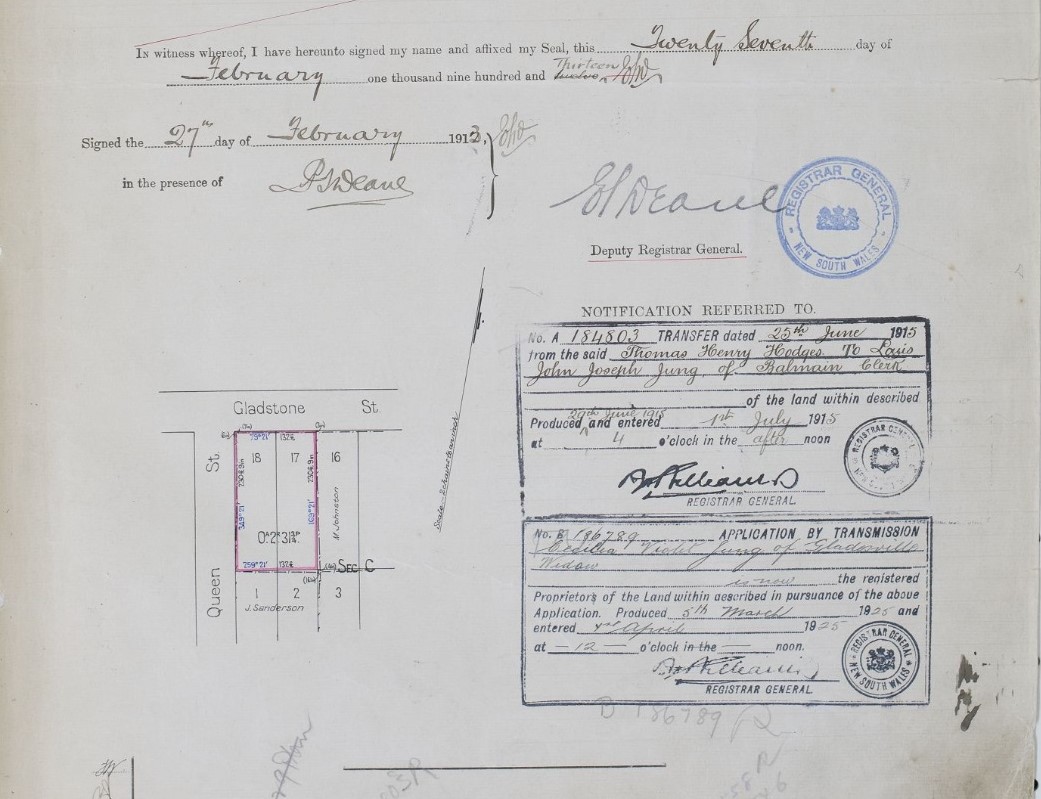 In witness whereof, I have hereunto signed my name and affixed my Seal, this Twenty Seventh day of
February one thousand nine hundred and twelve Thirteen
Signed the 27th day of February 1913,
in the presence of
Deane
Deane
REGISTRAR GENERAL
NEW SOUTH WALES
Deputy Registrar General.
NOTIFICATION REFERRED TO.
No. A 184803 TRANSFER dated 25th June 1915
from the said Thomas Henry Hodges To Louis
John Joseph Jung, of Balmain Clerk
of the land within described
29th June 1915
Produced and entered 1st July 1915
at 4 o'clock in the after noon
REGISTRAR GENERAL
REGISTRAR GENERAL
No. B 186789 APPLICATION BY TRANSMISSION
Cecilia Violet Jung of Gladesville
Widow
is now the registered
Proprietors of the Land within described in pursuance of the above
Application. Produced 5th March 1925 and
entered April 1925
at — 12 — o'clock in the — noon.
REGISTRAR GENERAL
REGISTRAR GENERAL
NEW SOUTH WALES
B 186789
Gladstone St.
Queen St.
79°21' 132
18 17 16
349°21'
169°21'
M. Johnston
0. 2. 31
259°21' 132
Sec C
1 2 3
J. Sanderson